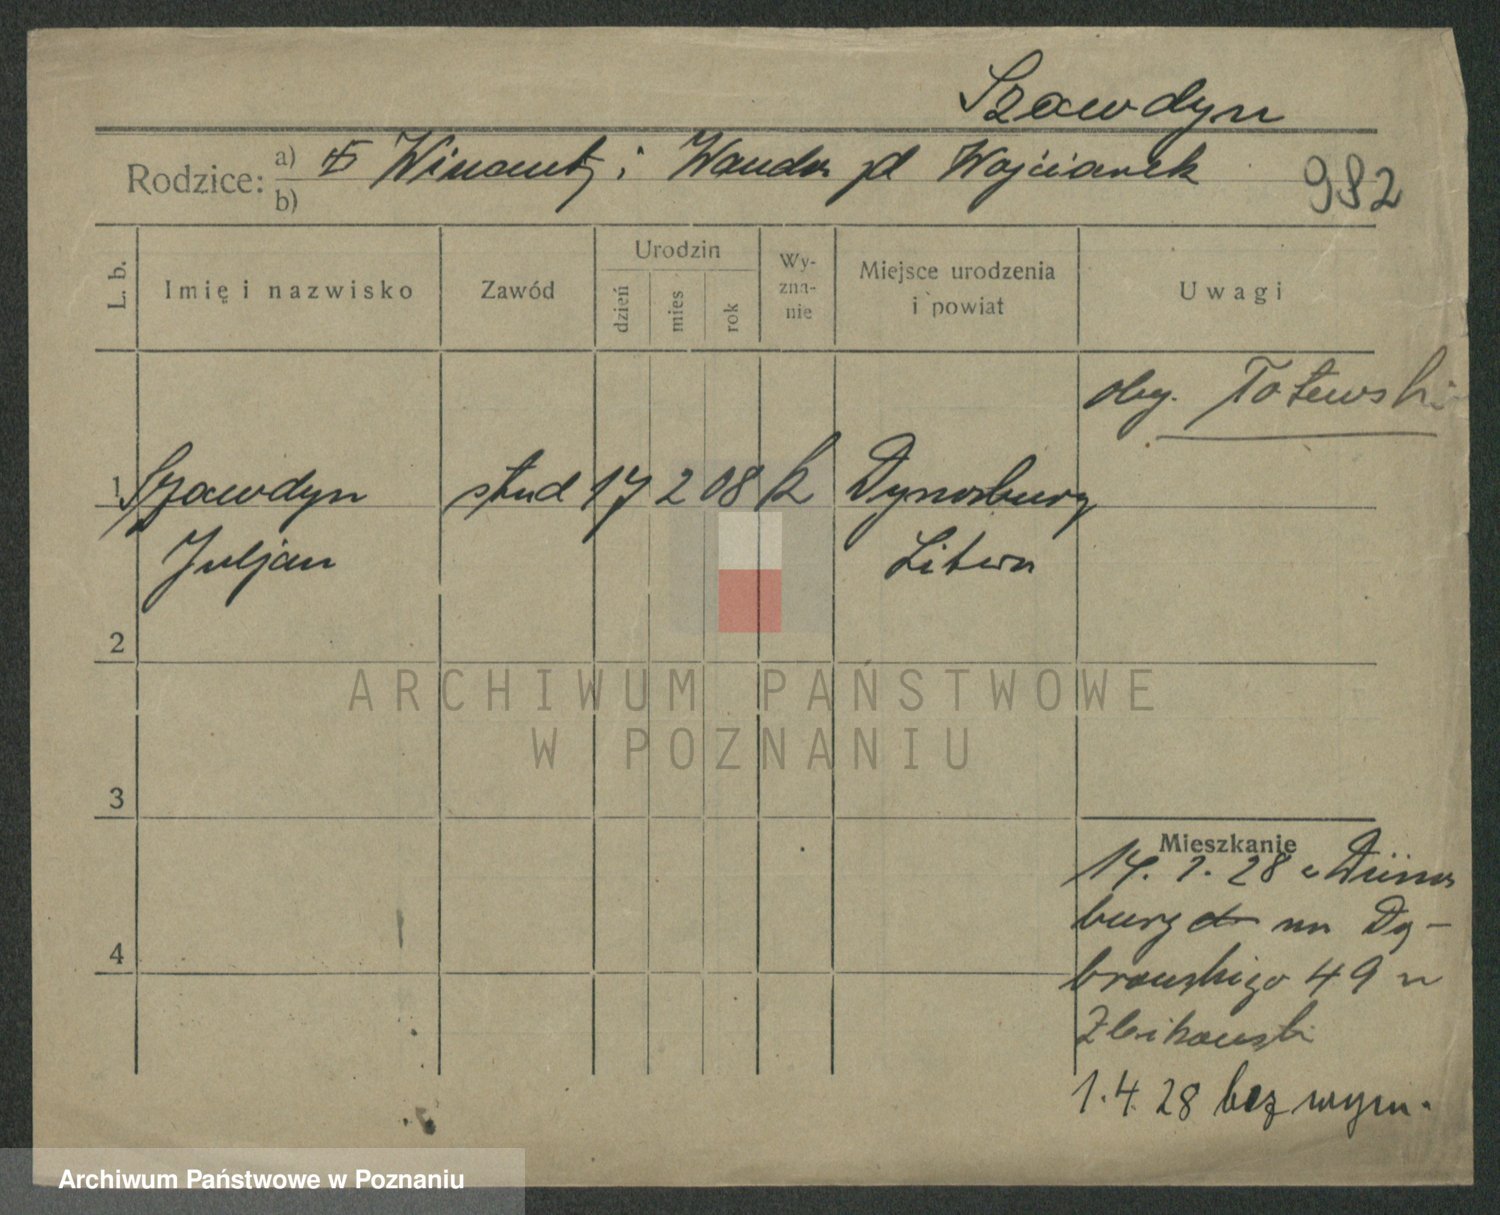 Szawdyn
Rodzice: a) Wincenty i Wanda zd Wojcianek
b)
982
L. b.
Imię i nazwisko
Zawód
Urodzin
dzień
mies
rok
Wy-
zna-
nie
Miejsce urodzenia
i powiat
Uwagi
oby. Łotewski
1 Szawdyn stud 17 2 08 k Dynaburg
Juljan Litwa
2
3
4
Mieszkanie
14. 2. 28 z Düna
burg na Dą-
browskiego 49 u
Zbikowski
1.4.28 bez wym.
ARCHIWUM PAŃSTWOWE
W POZNANIU
Archiwum Państwowe w Poznaniu